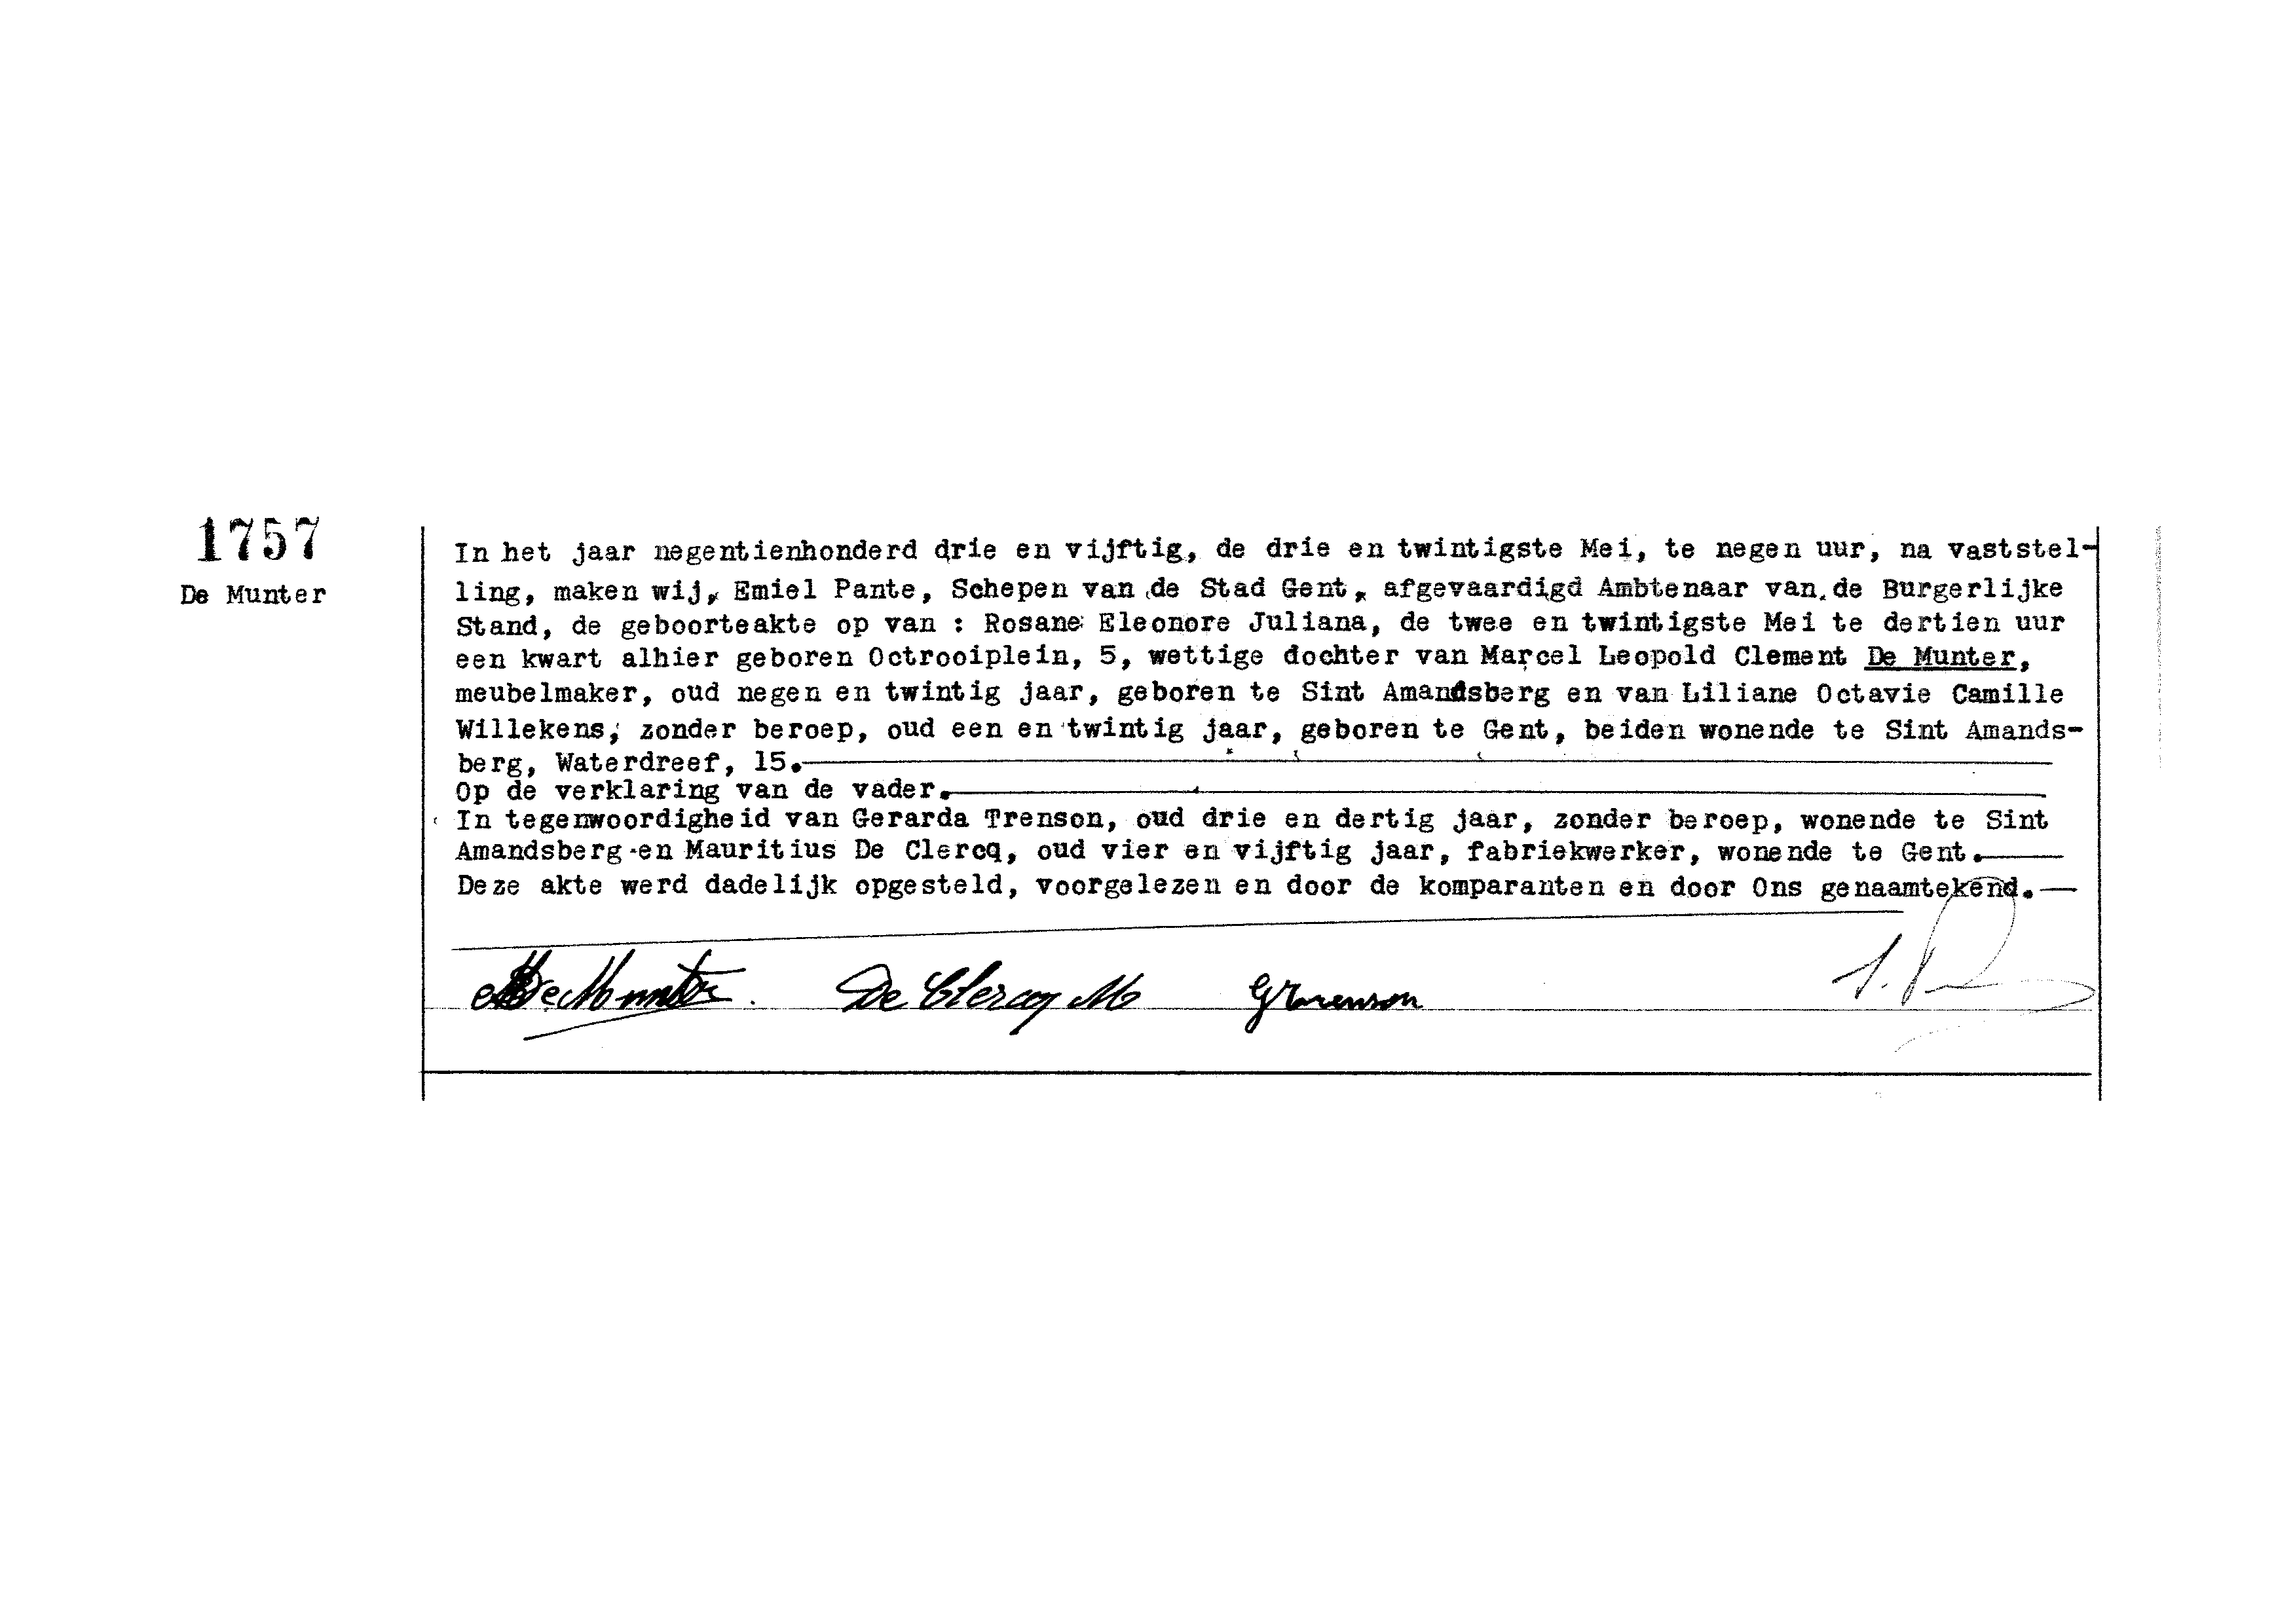 1757
De Munter
In het jaar negentienhonderd drie en vijftig, de drie en twintigste Mei, te negen uur, na vaststel-
ling, maken wij, Emiel Pante, Schepen van de Stad Gent, afgevaardigd Ambtenaar van de Burgerlijke
Stand, de geboorteakte op van : Rosane Eleonore Juliana, de twee en twintigste Mei te dertien uur
een kwart alhier geboren Octrooiplein, 5, wettige dochter van Marcel Leopold Clement De Munter,
meubelmaker, oud negen en twintig jaar, geboren te Sint Amandsberg en van Liliane Octavie Camille
Willekens, zonder beroep, oud een en twintig jaar, geboren te Gent, beiden wonende te Sint Amands-
berg, Waterdreef, 15.
Op de verklaring van de vader.
In tegenwoordigheid van Gerarda Trenson, oud drie en dertig jaar, zonder beroep, wonende te Sint
Amandsberg en Mauritius De Clercq, oud vier en vijftig jaar, fabriekwerker, wonende te Gent.
Deze akte werd dadelijk opgesteld, voorgelezen en door de komparanten en door Ons genaamtekend.
De Munter. De Clercq M GTrenson